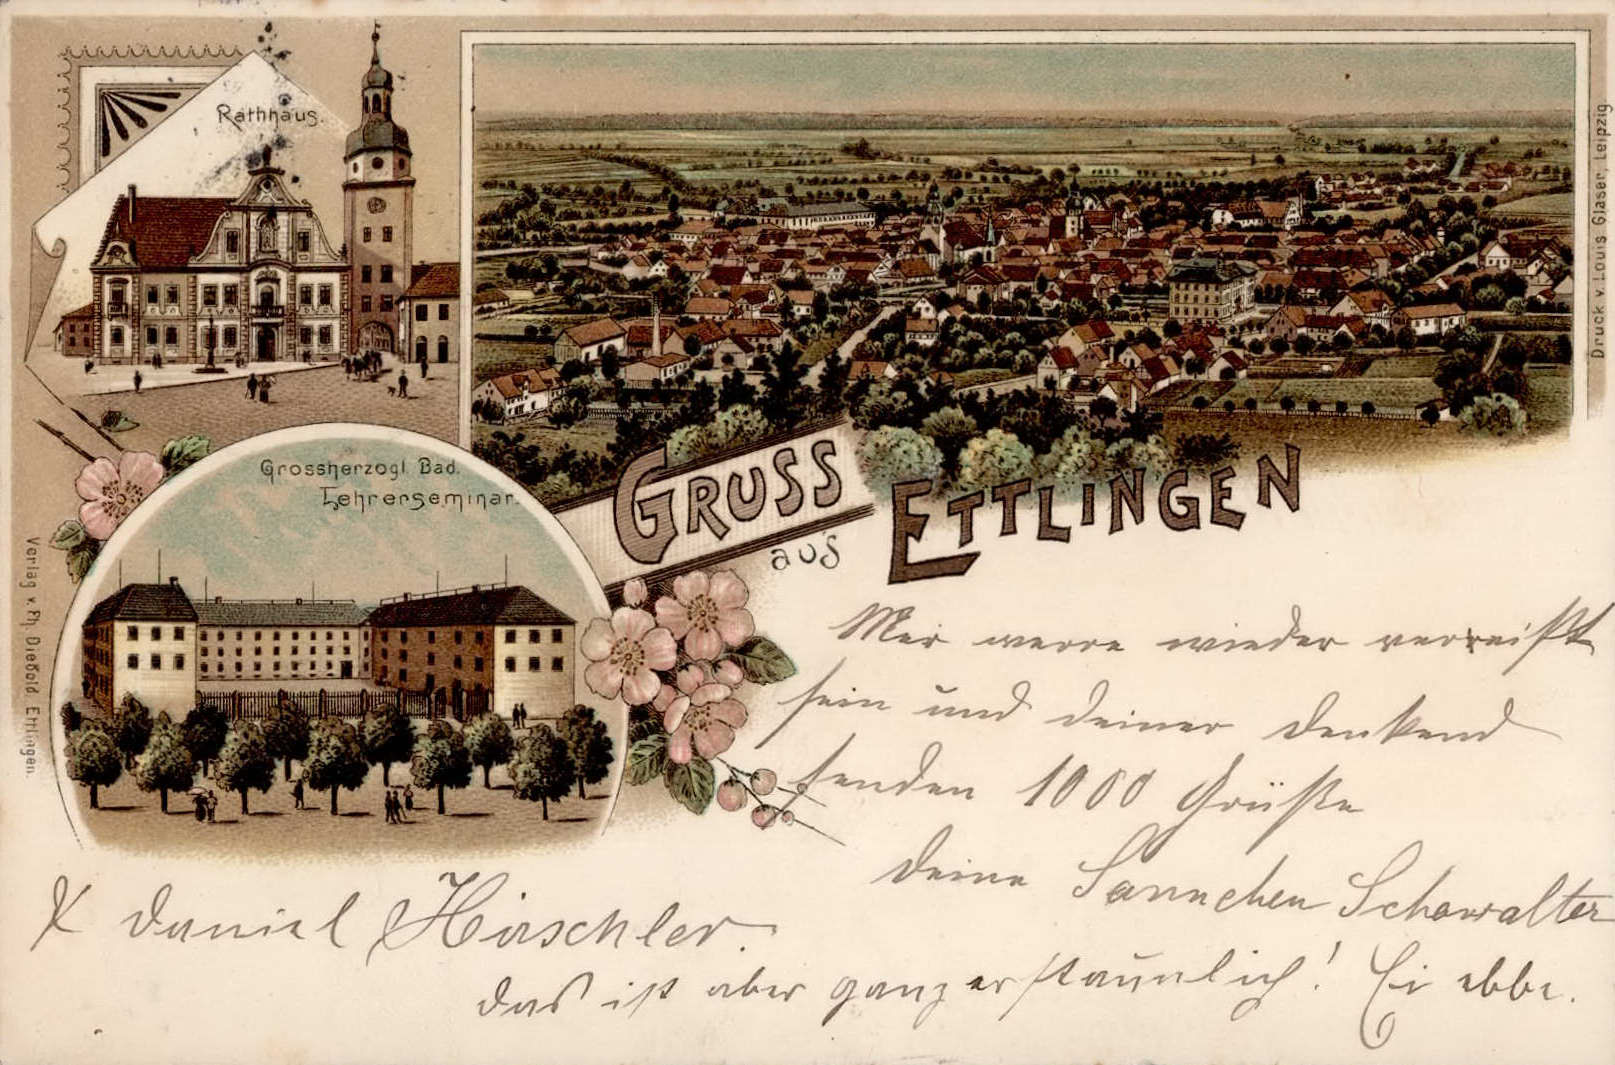 Rathhaus.
Grossherzogl. Bad.
Lehrerseminar.
GRUSS
aus
ETTLINGEN
Druck v. Louis Glaser, Leipzig
Verlag v. Ph. Dießold, Ettlingen.
Mir werre wieder verreißt
sein und deiner denkend
senden 1000 Grüße
deine Sannchen Schowalter
K Daniel Hirschler.
das ist aber ganz erstaunlich! Ei ebbe.